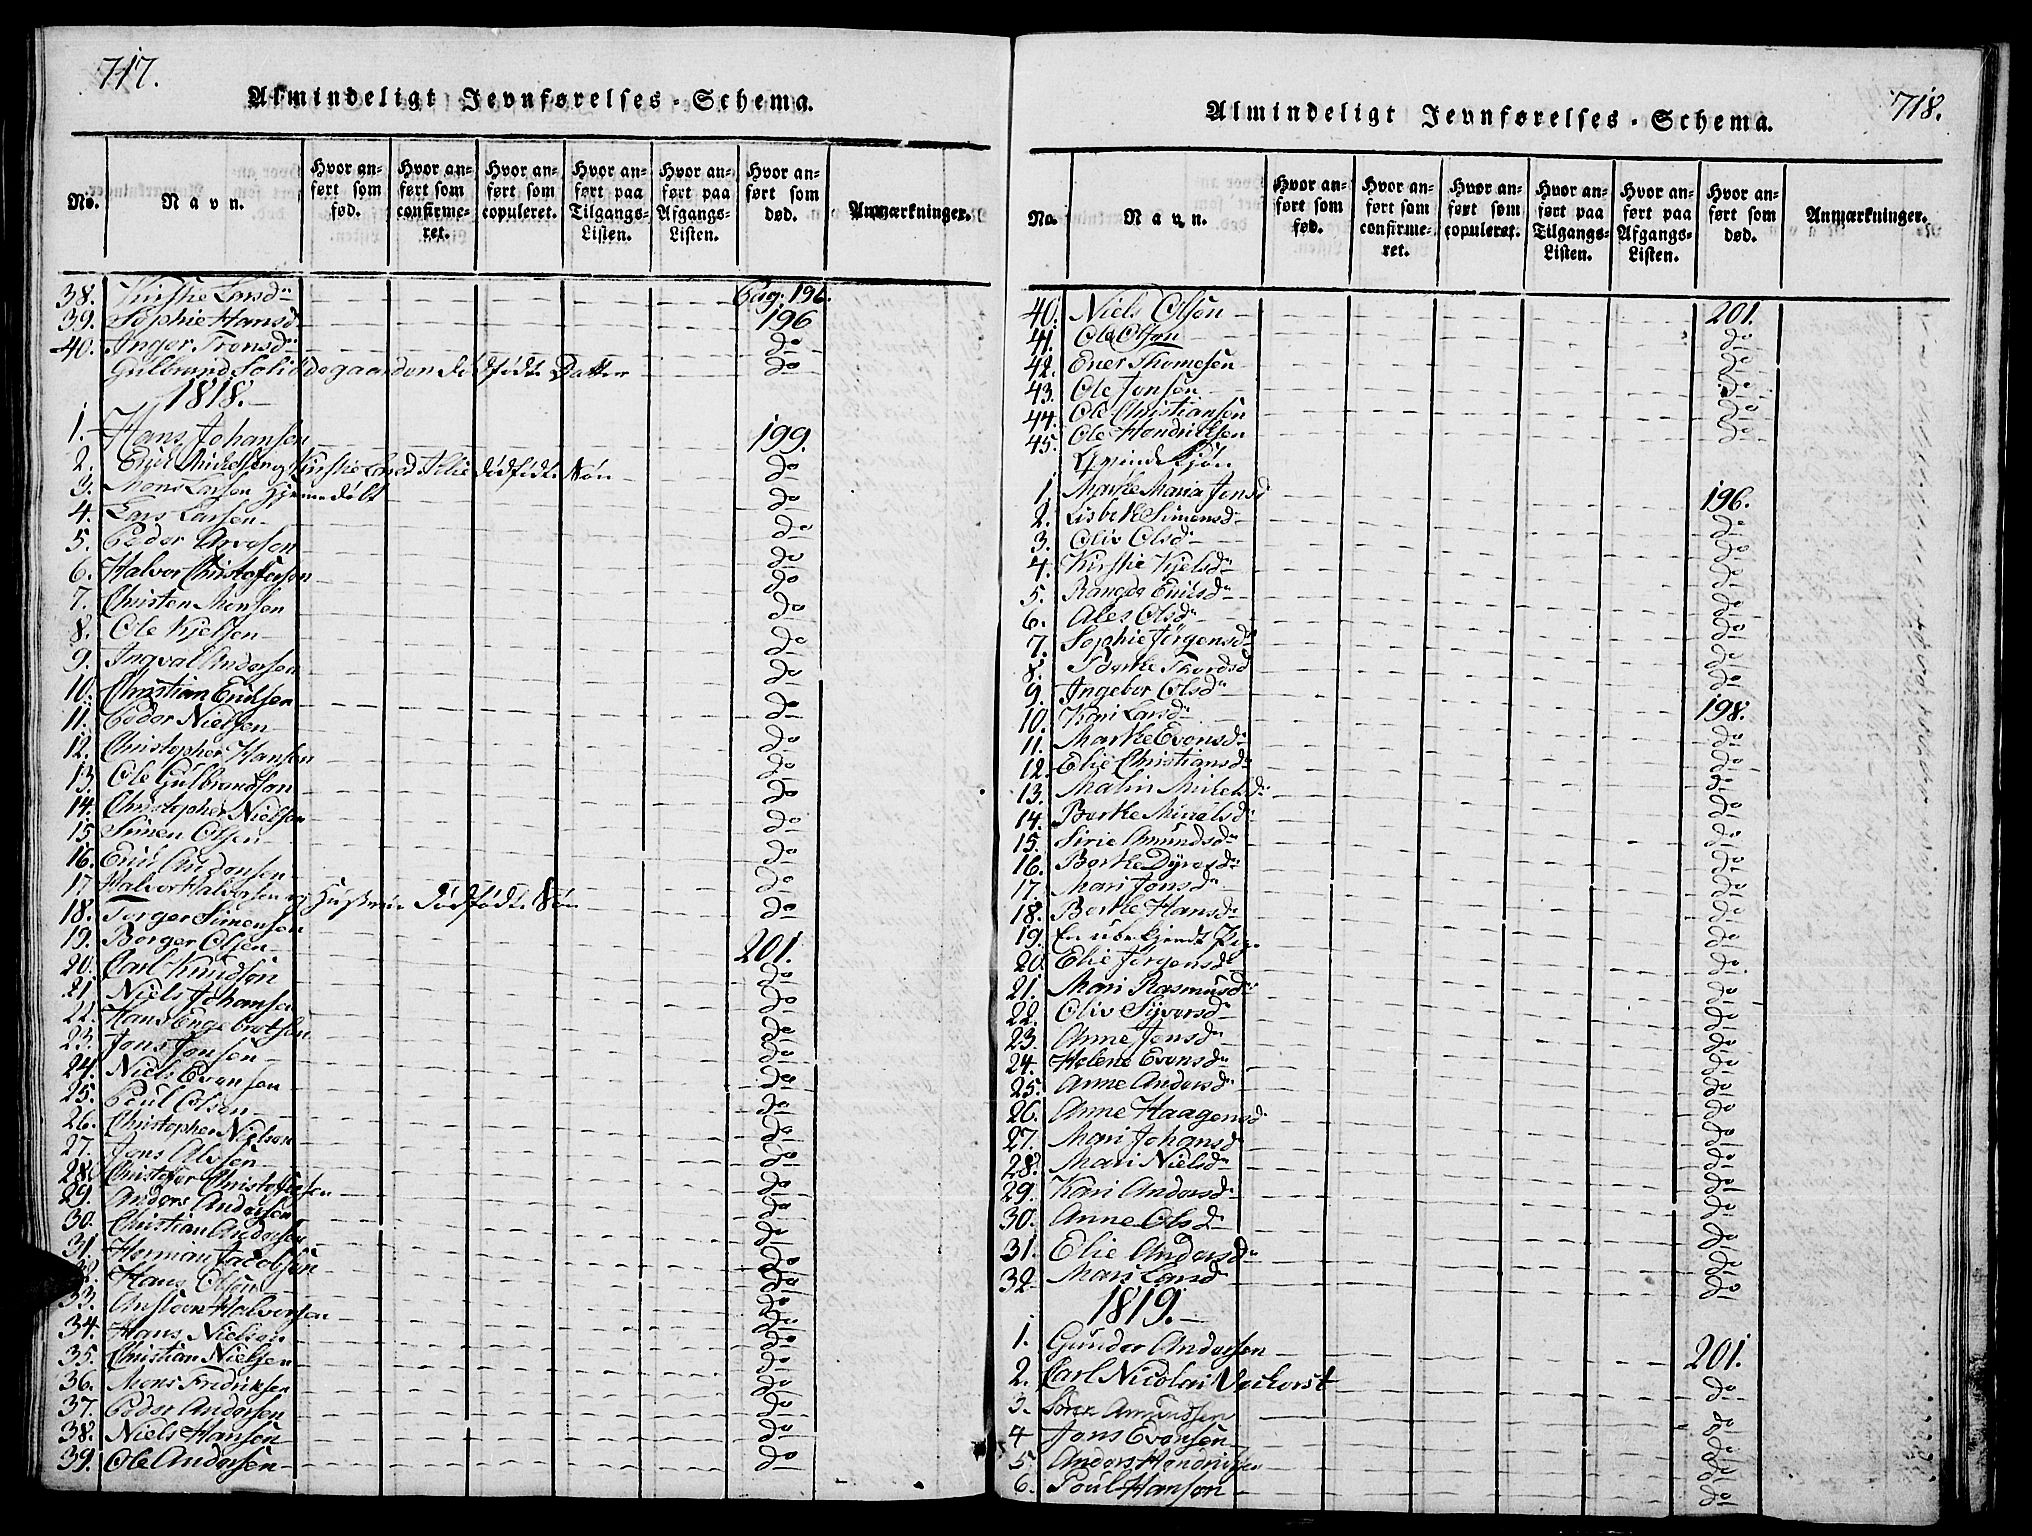 717.
Almindeligt Jevnførelses-Schema.
No. Navn. Hvor anført som fød. Hvor anført som confirmeret. Hvor anført som copuleret. Hvor anført paa Tilgangs-Listen. Hvor anført paa Afgangs-Listen. Hvor anført som død. Anmærkninger.
38. Kirstie Larsdr Pag. 196.
39. Sophie Hansd 196
40. Inger Tronsdr do
Gulbrand Solid dødfødte Datter do
1818.
1. Hans Johansen 199.
2. Eric dødfødte Søn do
3. Mons Larsen hjemedøbt do
4. Lars Larsen do
5. Peder Arvesen do
6. Halvor Christofersen do
7. Christen Monsen do
8. Ole Kjelsen do
9. Ingval Andersen do
10. Christian Ericksen do
11. Peder Nielsen do
12. Christopher Hansen do
13. Ole Gulbrandsen do
14. Christopher Nielsen do
15 Simen Olsen do
16. Eric Andersen do
17 Halvor Halvorsen og Hustrue dødfødte Søn do
18. Torger Simensen do
19. Borger Olsen 201.
20. Carl Knudsen do
21 Niels Johansen do
22. Hans Engebretsen do
23. Jens Jonsen do
24. Niels Evensen do
25. Poul Olsen do
26. Christopher Nielsen do
27. Jens Alvsen do
28. Christofer Christofersen do
29. Anders Andersen do
30. Christian Andersen do
31. Herman Jacobsen do
32. Hans Olsen do
33. Anstein Halvorsen do
34. Hans Nielsen do
35. Christian Nielsen do
36. Mons Fredriksen do
37. Peder Andersen do
38. Niels Hansen do
39. Ole Andersen do
718.
Almindeligt Jevnførelses-Schema.
No. Navn. Hvor anført som fød. Hvor anført som confirmeret. Hvor anført som copuleret. Hvor anført paa Tilgangs-Listen. Hvor anført paa Afgangs-Listen. Hvor anført som død. Anmærkninger.
40. Niels Olsen 201.
41. Ole Olsen do
42. Ener Thomesen do
43. Ole Jensen do
44. Ole Christiansen do
45. Ole Hendricksen do
Qvindekjøn
1 Marthe Maria Jensd 196.
2. Lisbethe Simensdr do
3. Oliv Olsdr do
4. Kirstie Kjelsdr do
5. Rangde Ericsdr do
6. Ales Olsdr do
7. Sophie Jørgensdr do
8. Thordsd do
9. Ingebor Olsdr do
10. Kari Larsdr 198.
11. Marthe Evensdr do
12. Elie Christiansdr do
13. Malin Mickelsdr do
14. Berthe do
15. Sirie Amundsdr do
16. Berthe Dyresdr do
17. Mari Jonsdr do
18. Berthe Hansdr do
19. En ubekjendt do
20. Elie Jørgensdr do
21. Mari Rasmusdr do
22. Oliv Syversdr do
23. Anne Jensdr do
24. Helene Evensdr do
25. Anne Andersdr do
26. Anne Haagensdr do
27. Mari Johansd do
28. Mari Nielsdr do
29. Kari Andersdr do
30. Anne Olsdr do
31. Elie Andersdr do
32 Mari Larsd do
1819.
1. Gunder Andersen 201.
2. Carl Nicolai do
3. Amundsen do
4 Jens Evensen do
5 Anders Hendricksen do
6. Poul Hansen do